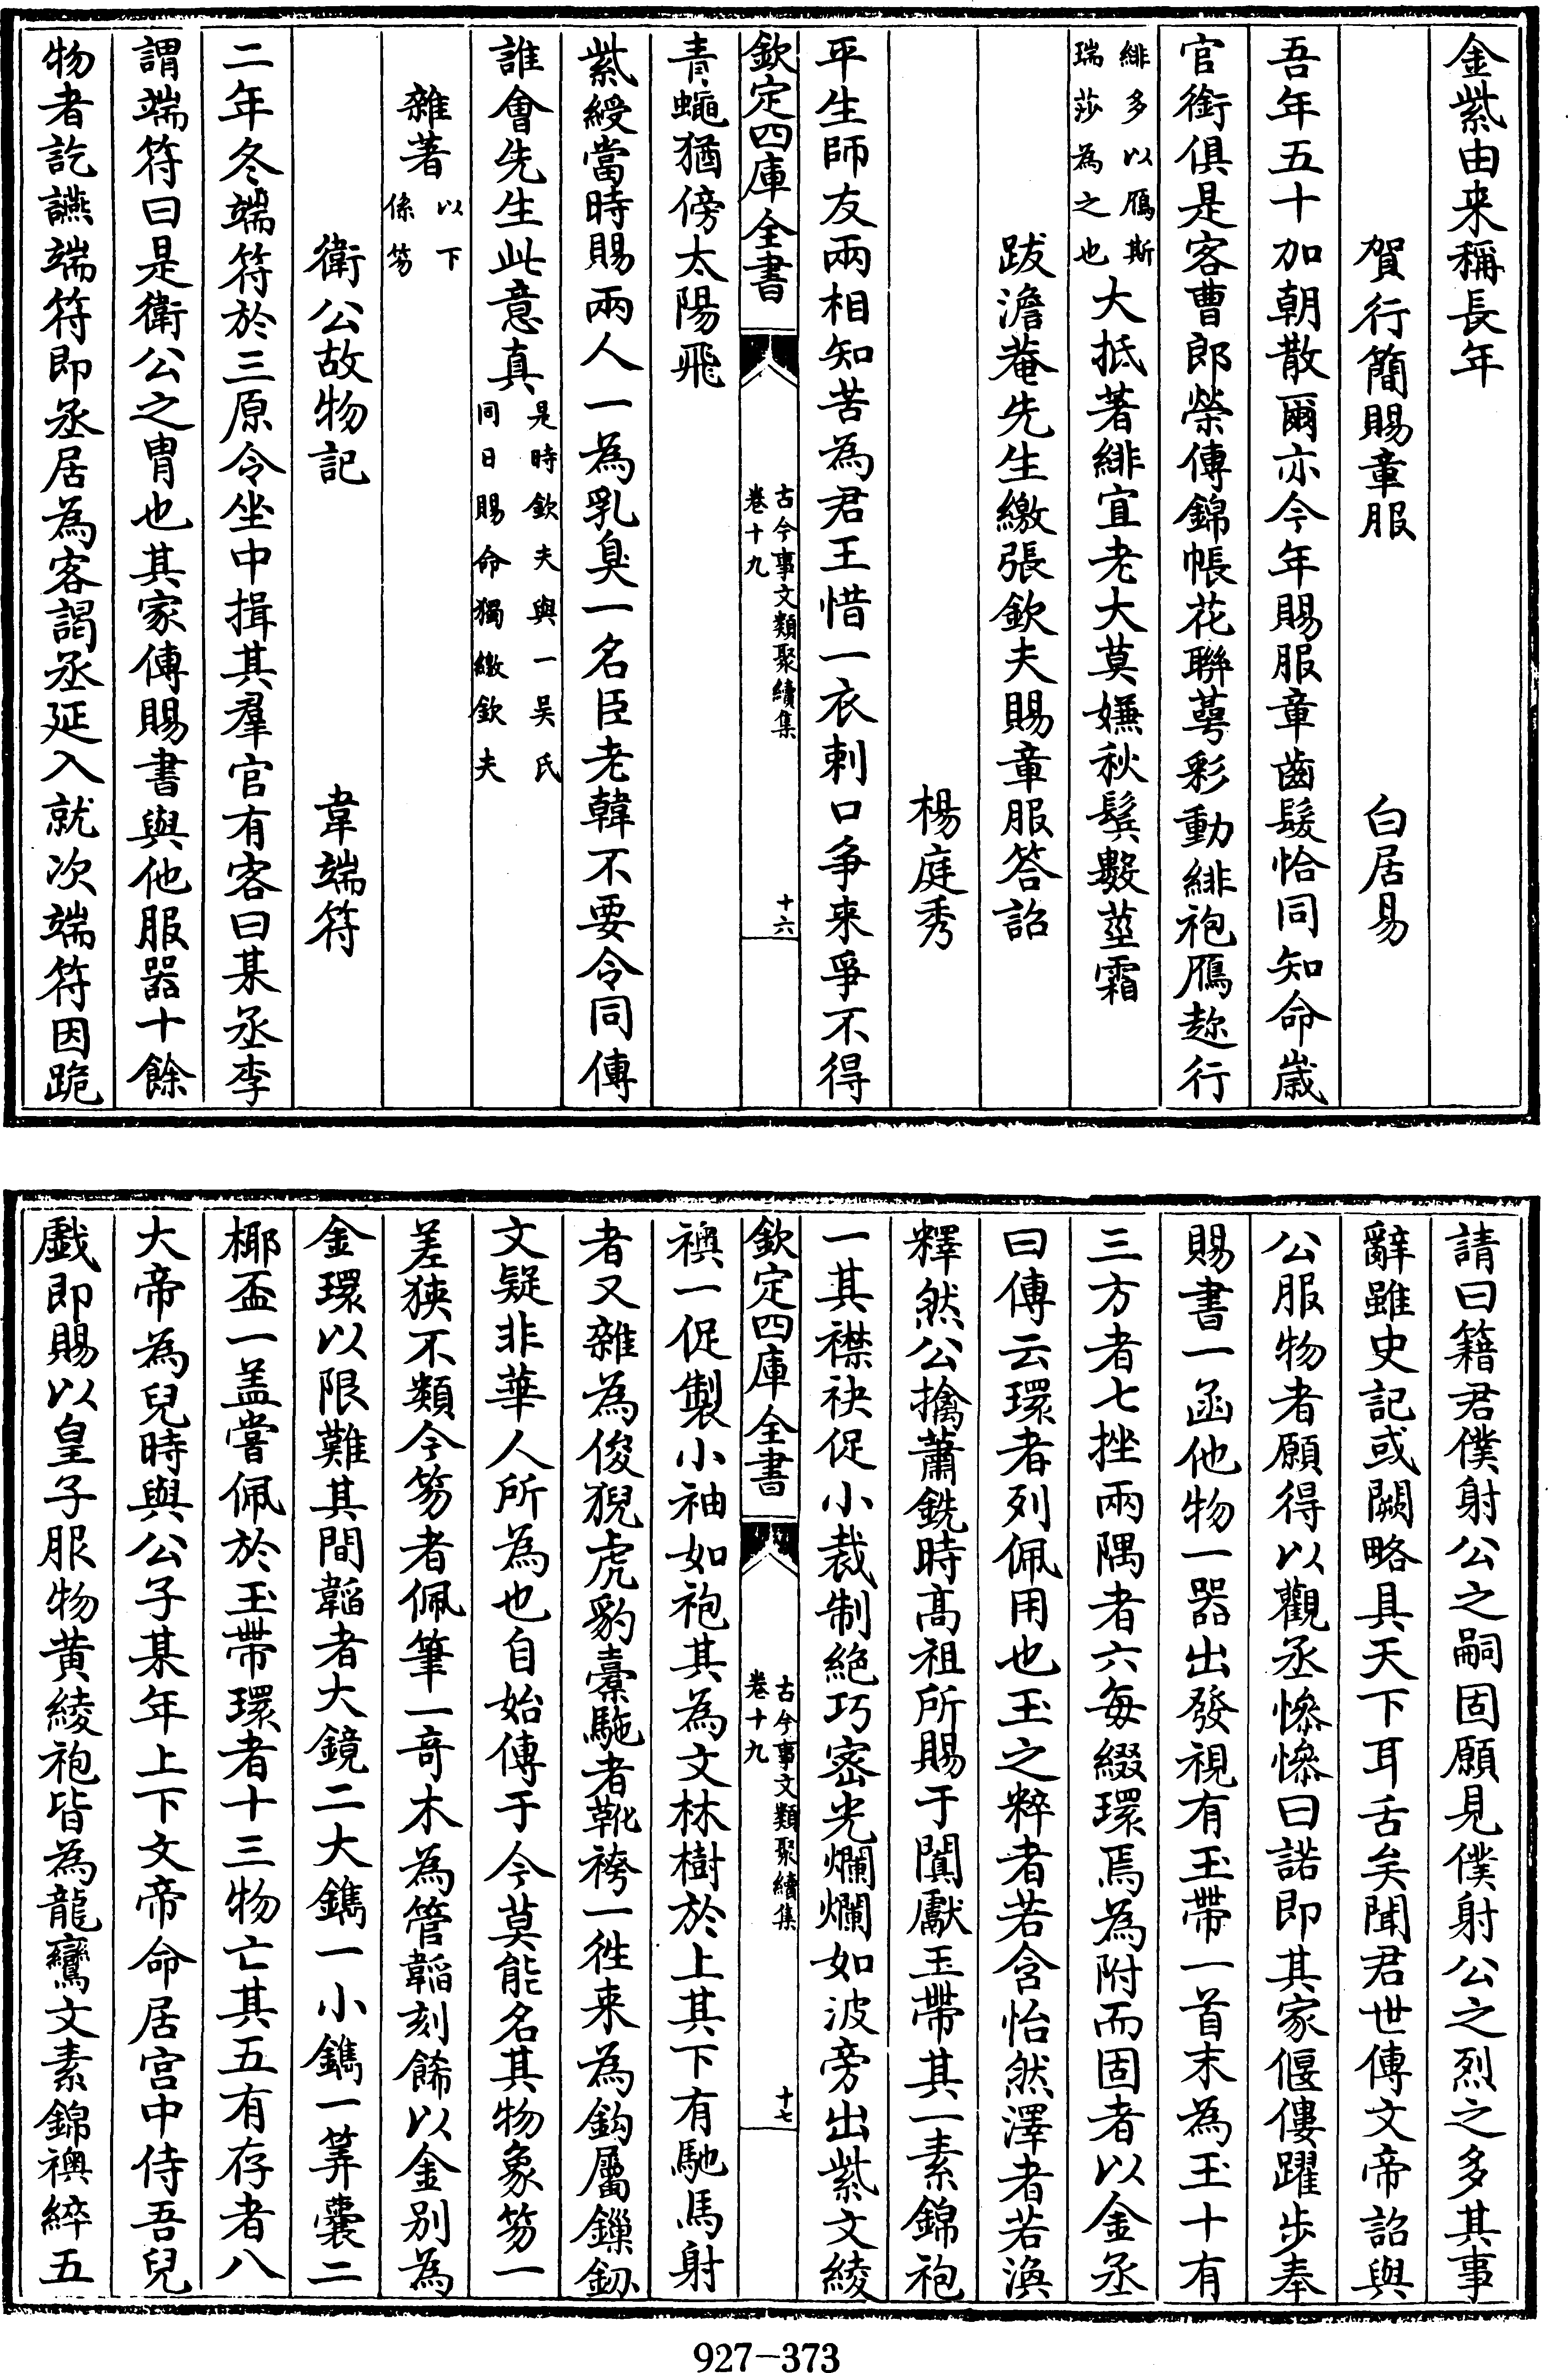 金紫由来稱長年
賀行簡賜章服　白居易
吾年五十加朝散爾亦今年賜服章齒髮恰同知命歲
官銜俱是客曹郎榮傳錦帳花聯萼彩動緋袍鴈趂行
緋多以鴈斯
瑞莎為之也
大抵著緋宜老大莫嫌秋鬂數莖霜
跋澹菴先生繳張欽夫賜章服答詔
楊庭秀
平生師友兩相知苦為君王惜一衣刺口争来爭不得
欽定四庫全書
古今事文類聚續集
卷十九
十六
青蠅猶傍太陽飛
紫綬當時賜兩人一為乳臭一名臣老韓不要令同傳
誰會先生此意真
是時欽夫與一吴氏
同日賜命獨繳欽夫
雜著
以下
係笏
衛公故物記　韋端符
二年冬端符於三原令坐中揖其羣官有客曰某丞李
謂端符曰是衛公之胄也其家傳賜書與他服器十餘
物者訖讌端符即丞居為客謁丞延入就次端符因跪
請曰籍君僕射公之嗣固願見僕射公之烈之多其事
辭雖史記或闕略具天下耳舌矣聞君世傳文帝詔與
公服物者願得以觀丞慘慘曰諾即其家偃僂躍步奉
賜書一函他物一器出發視有玉帶一首末為玉十有
三方者七挫兩隅者六每綴環焉為附而固者以金丞
曰傳云環者列佩用也玉之粹者若含怡然澤者若渙
釋然公擒蕭銑時高祖所賜于闐獻玉帶其一素錦袍
一其襟袂促小裁制絶巧密光爛爛如波旁出紫文綾
欽定四庫全書
古今事文類聚續集
卷十九
十七
襖一促製小袖如袍其為文林樹於上其下有馳馬射
者又雜為俊猊虎豹橐駞者靴袴一徃来為鈎屬鏁釼
文疑非華人所為也自始傳于今莫能名其物象笏一
差狹不類今笏者佩筆一竒木為管韜刻餙以金别為
金環以限難其間韜者大鏡二大鐫一小鐫一筭囊二
椰盃一盖嘗佩於玉帶環者十三物亡其五有存者八
大帝為兒時與公子某年上下文帝命居宫中侍吾兒
戲即賜以皇子服物黄綾袍皆為龍鸞文素錦襖綷五
927-373